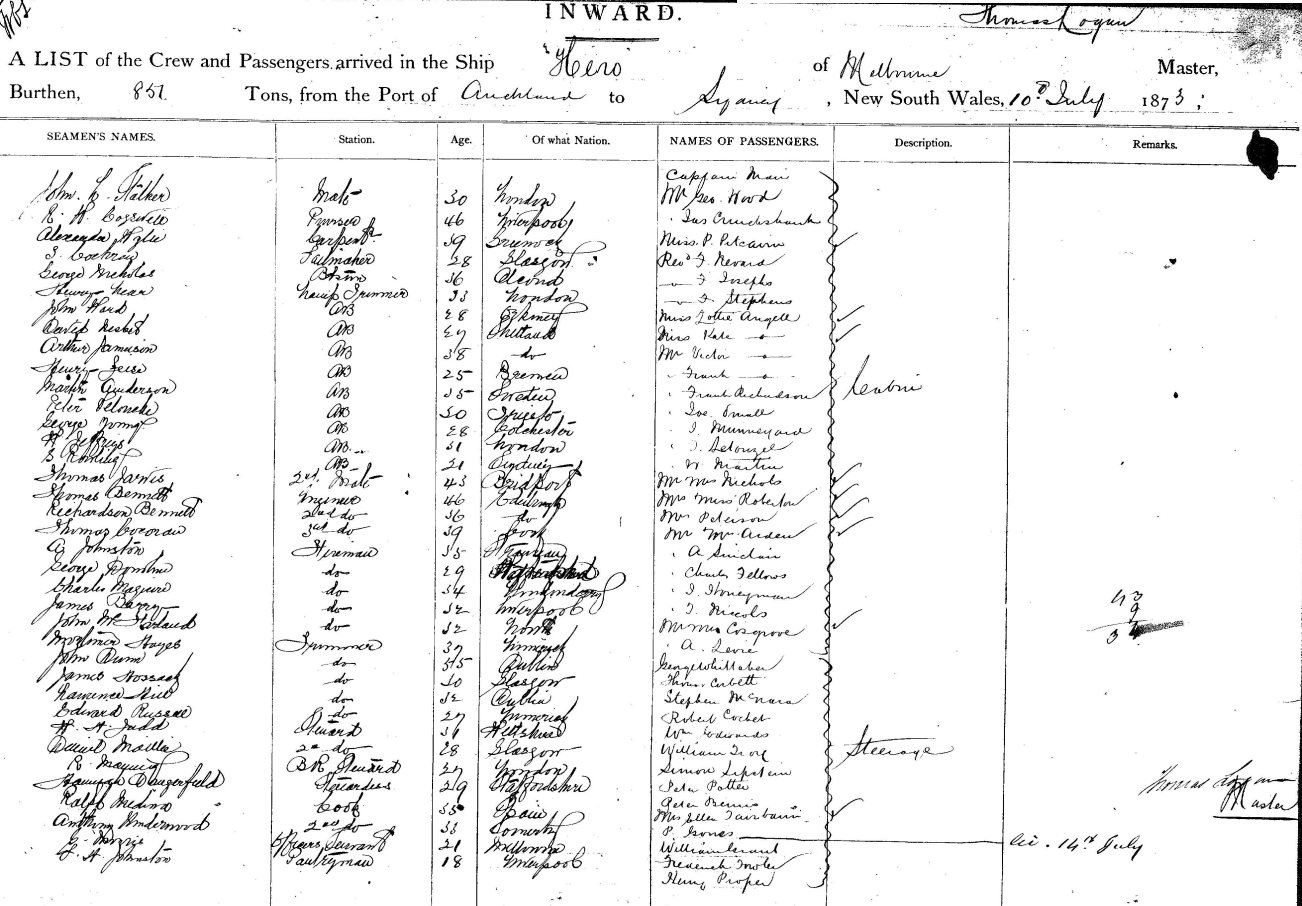 INWARD.
Thomas Logan
A LIST of the Crew and Passengers arrived in the Ship "Hero of Melbourne Master,
Burthen, 851 Tons, from the Port of Auckland to Sydney, New South Wales, 10th July 1873;
SEAMEN'S NAMES. Station. Age. Of what Nation. NAMES OF PASSENGERS. Description. Remarks.
Captain Mair
John C. Stalker Mate 30 London Mr Geo. Wood
R. H. Purser 46 Liverpool Jas Cruickshank
Alexander Wylie Carpentr 39 Greenock Miss. P. Pitcairn
Cochran Sailmaker 28 Glasgow Revd F. Nevard
George Nicholas Btswn 36 F Josephs
Henry Near Lamp Trimmer 33 London F Stephens
John Ward AB 28 Orkney Miss Lottie Angell
David Nesbit AB 27 Shetland Miss Kate —"—
Arthur Jamieson AB 38 do Mr Victor —"—
Henry AB 25 Bremen " Frank —"—
Martin Anderson AB 35 Sweden " Frank Richardson Cabin
Peter AB 30 Trieste " Jos. Small
George Young AB 28 Colchester " J.
H Jeffreys AB 31 London
S AB 21 Sydney " W Martin
Thomas Jarvis 2nd Mate 43 Bridport Mr Mrs Nichols
Thomas Bennett Engineer 46 Edinburgh Mrs Miss Roberton
Richardson Bennett 2nd do 36 do Mrs Peterson
Thomas Corcoran 3rd do 39 Cork Mr Mrs Arden
G Johnston Fireman 35 " A Sinclair
George do 29 " Charles Fellows
Charles Maguire do 34 Londonderry " J. Honeyman
James Barry do 32 Liverpool " T. Niccols
John do 32 Mr Mrs Cosgrove
Mortimer Hayes Trimmer 37 Limerick " A. Levie
John Dunn do 35 Dublin George Whittaker
James Hossack do 30 Glasgow Thomas Corbett
Lawrence Hill do 32 Dublin Stephen McNara
Edward Russell do 27 Limerick Robert
H. A. Judd Steward 31 Wiltshire Wm Edwards
Daniel 2nd do 28 Glasgow William Steerage
R. BR Steward 27 London Simon
Hannah Dangerfield Stewardess 29 Staffordshire Peter Potter
Ralph Medina Cook 35 Spain Peter
Anthony Underwood 2nd do 33 Mrs Ellen Fairbairn
Servant 21 Melbourne P. Jones
F. H. Johnston Pantryman 18 Liverpool William Grant
Frederick Fowler
Henry Proper
43
9
34
Thomas Logan
Master
14th July